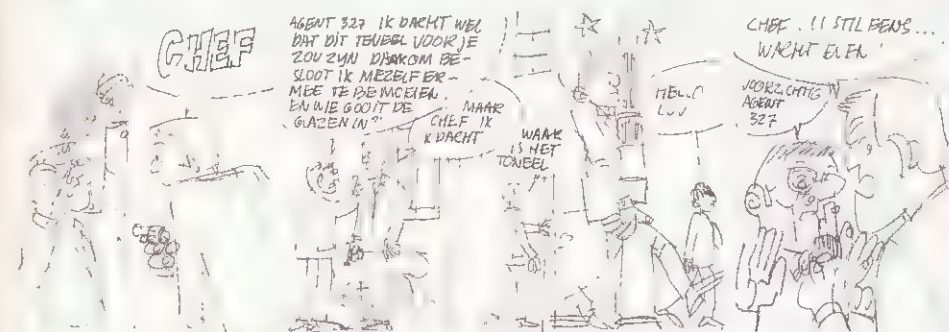 CHEF
AGENT 327 IK DACHT WEL
DAT DIT TEVEEL VOOR JE
ZOU ZYN DAAROM BE-
SLOOT IK MEZELF ER-
MEE TE BEMOEIEN.
EN WIE GOOIT DE
GLAZEN IN?
MAAR
CHEF IK
K DACHT
WAAR
IS HET
TONEEL
CHEF . !! STIL EENS...
WACHT EVEN!
VOORZICHTIG
AGENT
327